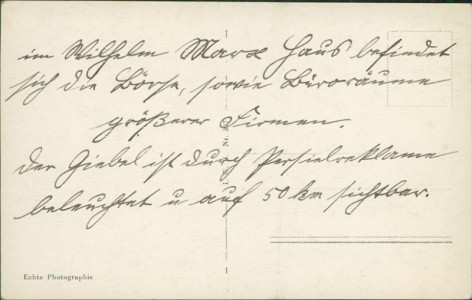 im Wilhelm Marx Haus befindet
sich die Börse, sowie Büroräume
größerer Firmen.
Der Giebel ist durch Persilreklame
beleuchtet u auf 50 km sichtbar.
Echte Photographie